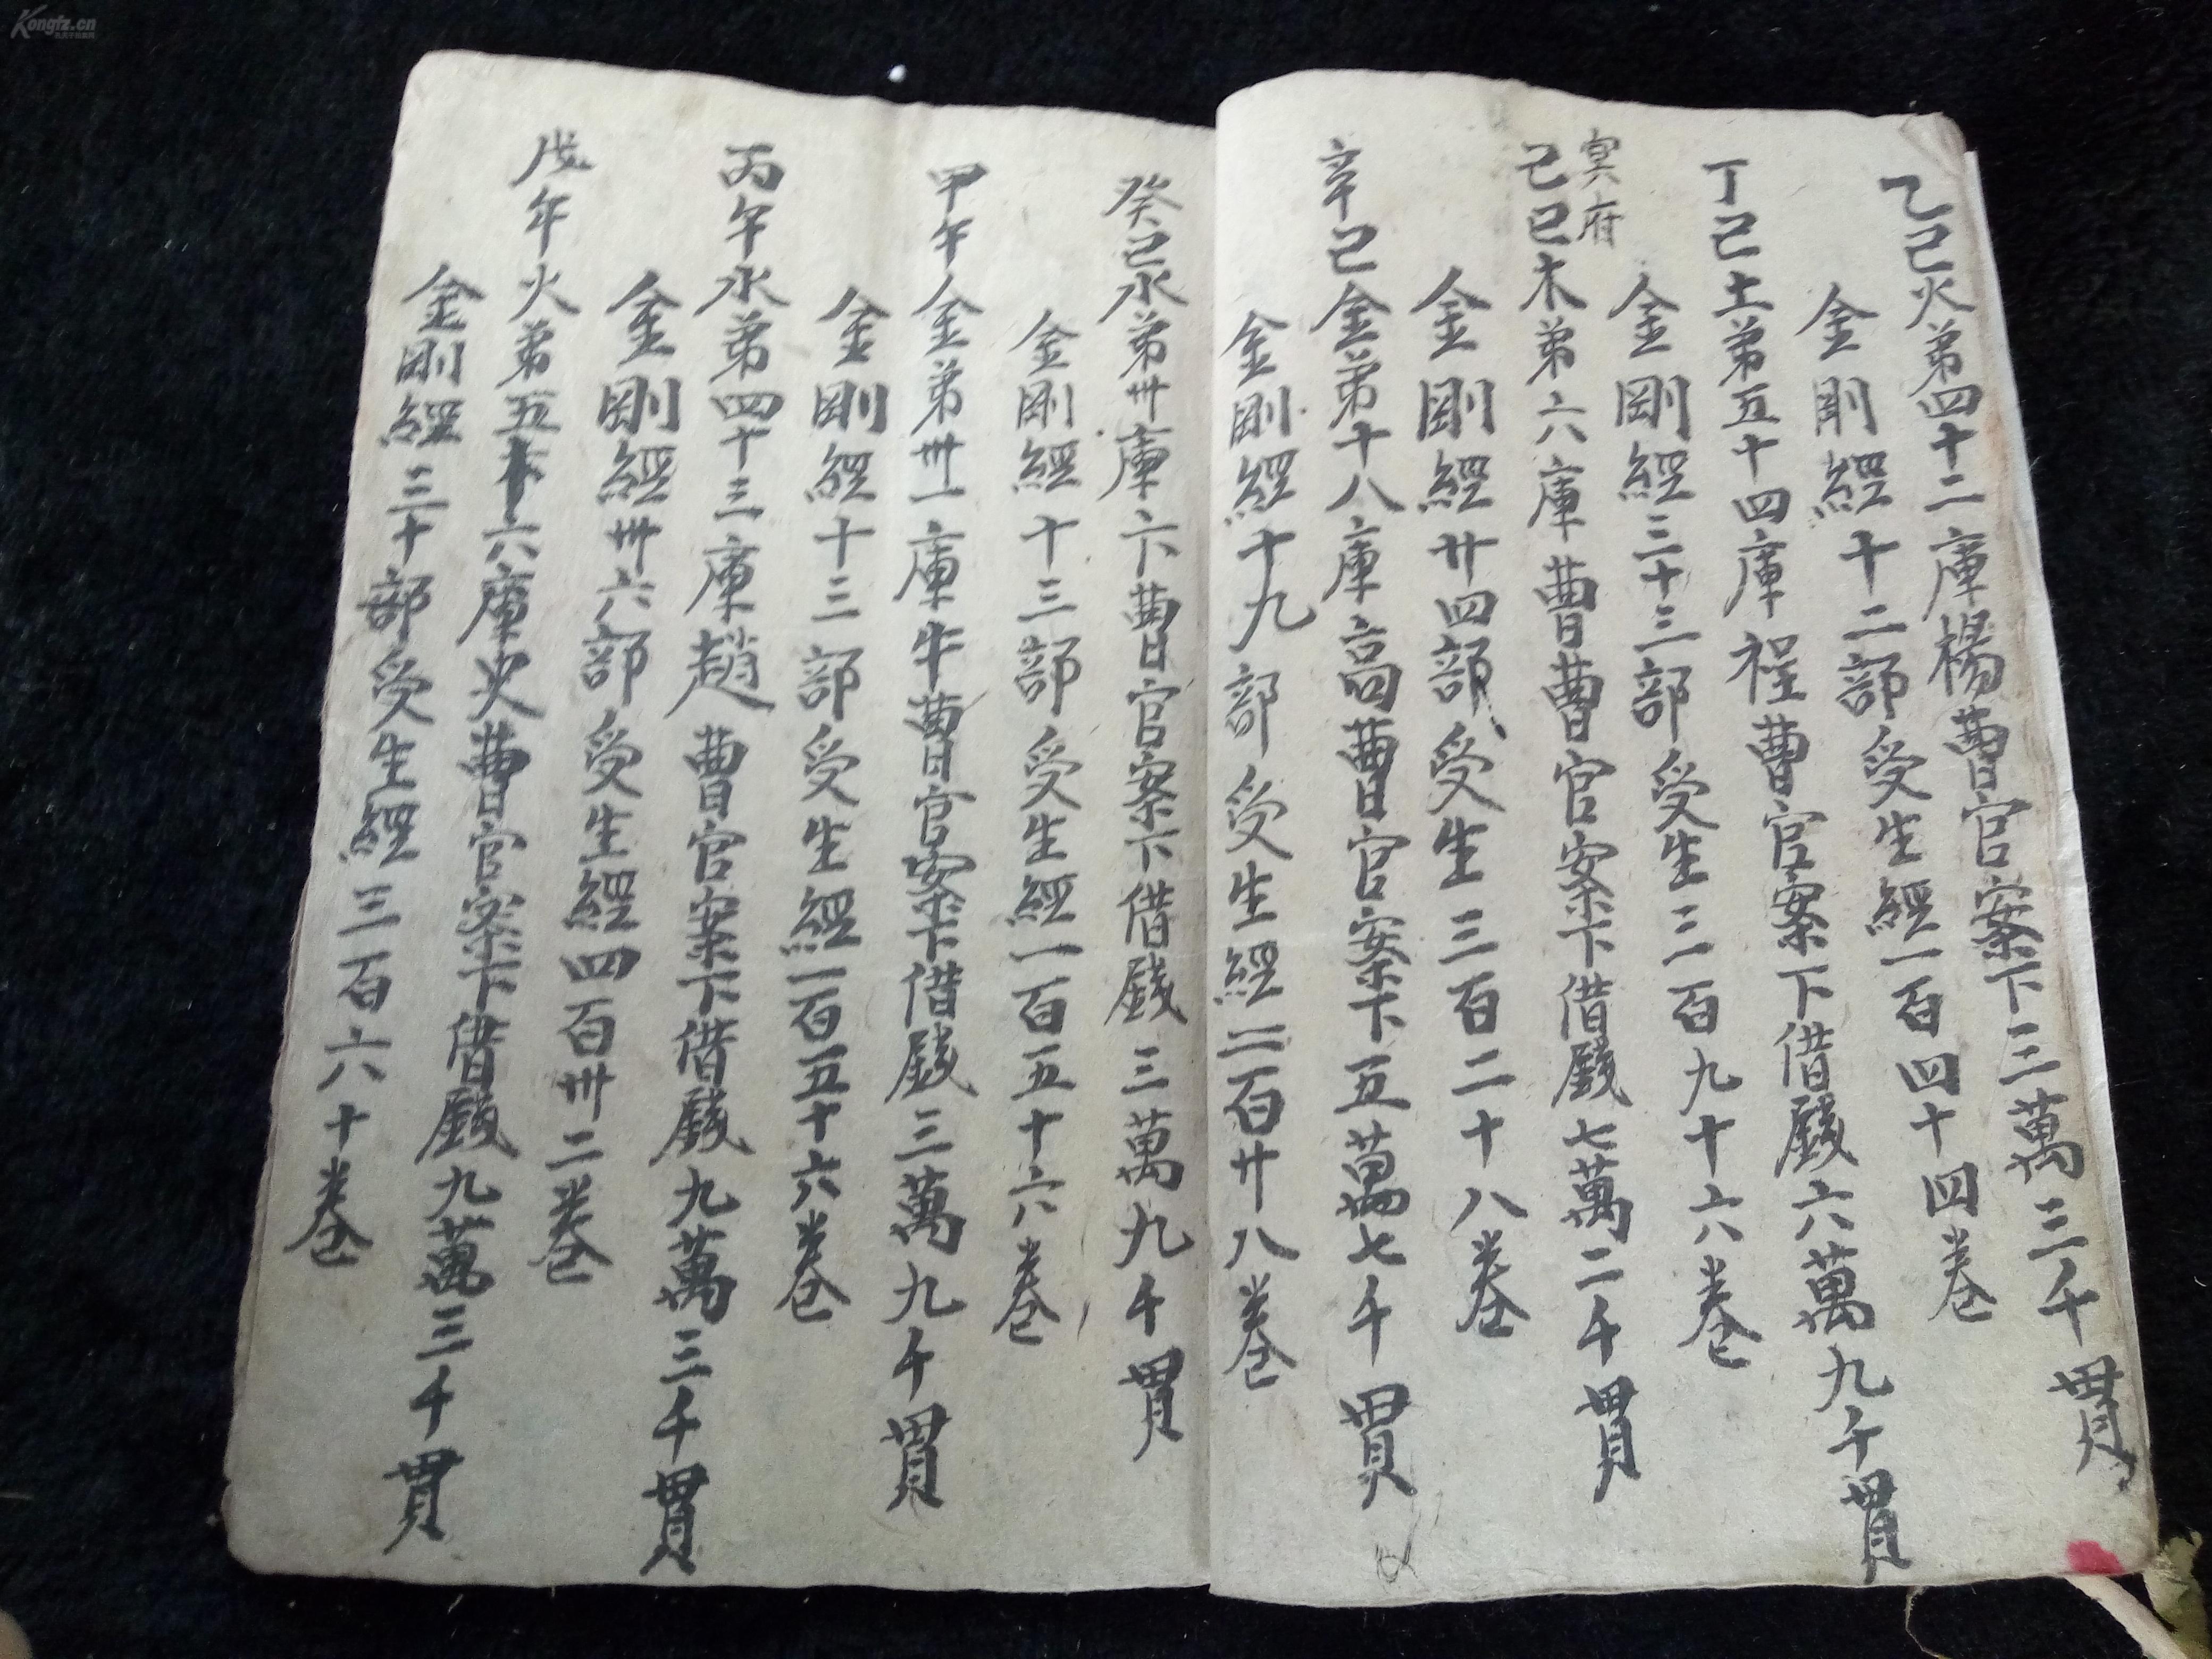 乙巳火弟四十二庫楊曹官案下三萬三千貫
金剛經十二部受生經一百四十四卷
丁巳土弟五十四庫程曹官案下借錢六萬九千貫
金剛經三十三部受生三百九十六卷
冥府
己巳木弟六庫曹曹官案下借錢七萬二千貫
金剛經廿四部受生三百二十八卷
辛巳金弟十八庫高曹官案下五萬七千貫
金剛經十九部受生經二百廿八卷
癸巳水弟卅庫卞曹官案下借錢三萬九千貫
金剛經十三部受生經一百五十六卷
甲午金弟卅一庫牛曹官案下借錢三萬九千貫
金剛經十三部受生經一百五十六卷
丙午水弟四十三庫趙曹官案下借錢九萬三千貫
金剛經卅六部受生經四百卅二卷
戊午火弟五十六庫史曹官案下借錢九萬三千貫
金剛經三十部受生經三百六十卷
Kongfz.cn